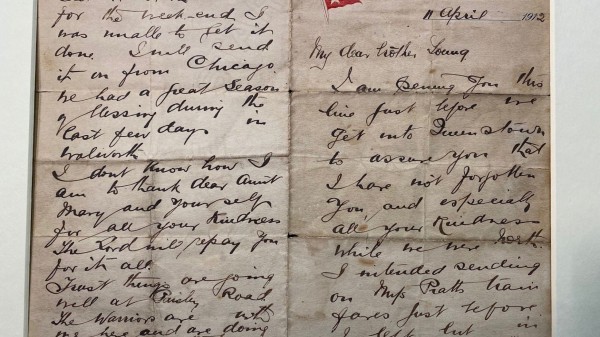 11 April 1912
My dear brother Young
I am penning you this
line just before we
get into Queenstown
to assure you that
I have not forgotten
you and especially
all your kindness
while we were North.
I intended sending
on Miss Pratts train
fares just before
I left but in
for the week-end I
was unable to get it
done. I will send
it on from Chicago.
We had a great season
of blessing during the
last few days in
Walworth
I dont know how I
am to thank dear Aunt
Mary and Yourself
for all your kindness
The Lord will repay you
for it all.
Trust things are going
well at Paisley Road
The Warriors are with
me here and are doing